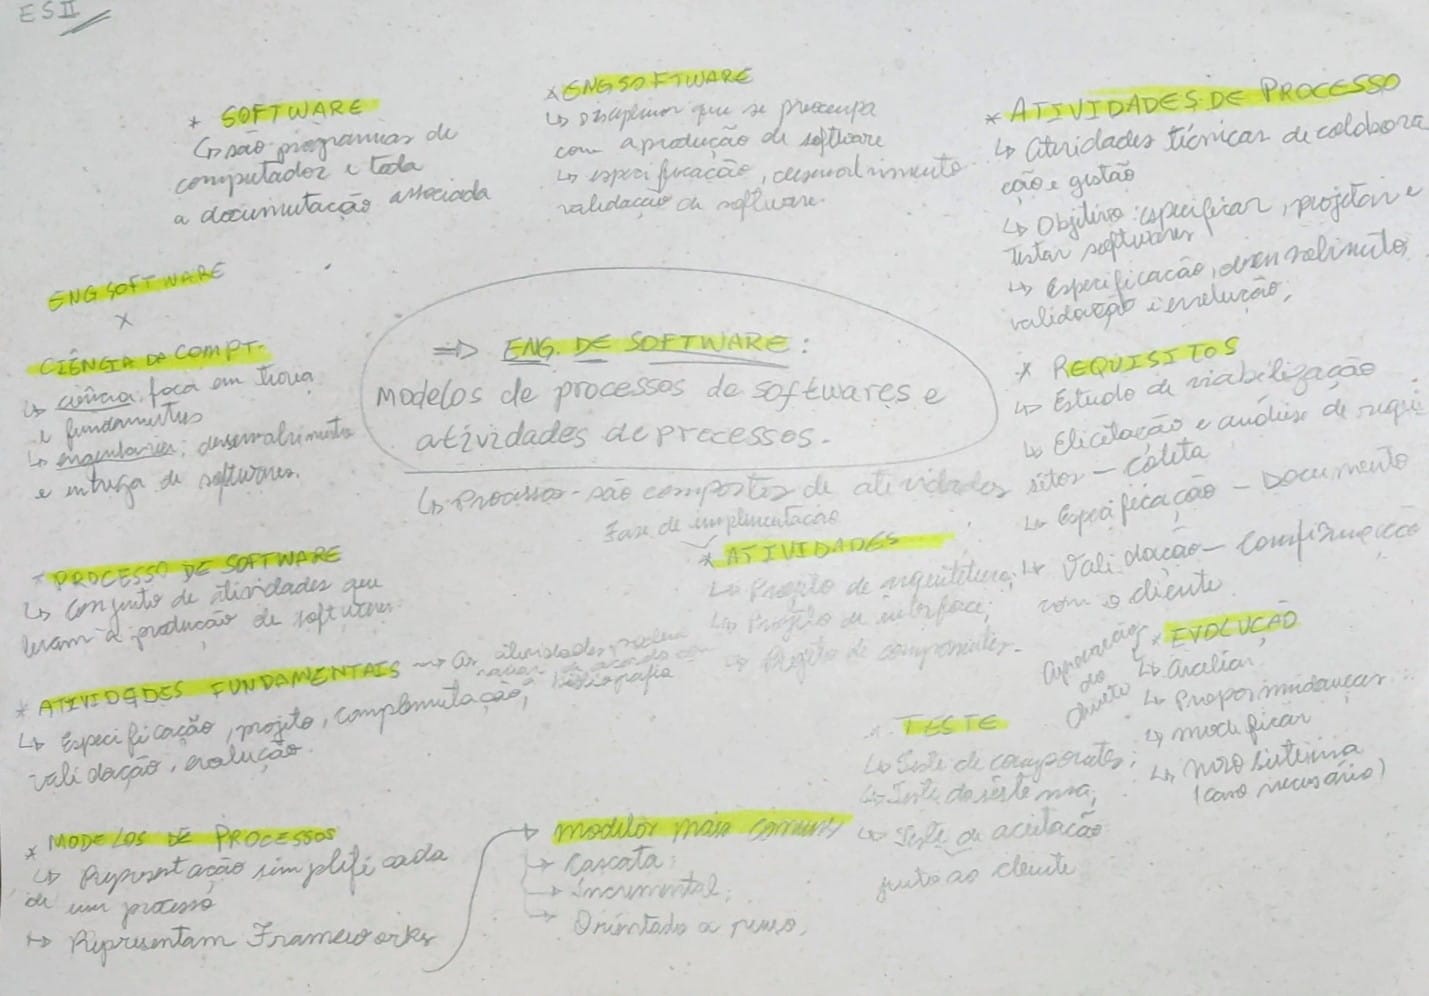 ES II
* SOFTWARE
↳ são programas de
computador e toda
a documentação associada
* ENGSOFTWARE
↳ Disciplina que se preocupa
com a produção de software
↳ especificação, desenvolvimento
validação de software.
* ATIVIDADES DE PROCESSO
↳ atividades técnicas de colabora
ção e gestão
↳ Objetivo: especificar, projetar e
testar softwares
↳ Especificação, desenvolvimento,
validação e evolução,
ENGSOFTWARE
X
CIÊNCIA DA COMPT.
↳ ciência foca em teoria
e fundamentos
↳ engenharia: desenvolvimento
e entrega de softwares.
⇒ ENG. DE SOFTWARE:
Modelos de processos de softwares e
atividades de processos.
↳ Processos - são compostos de atividades
* REQUISITOS
↳ Estudo de viabilização
↳ Elicitação e análise de requi
sitos - Coleta
↳ Especificação - Documento
↳ Validação - Confirmação
com o cliente
* PROCESSO DE SOFTWARE
↳ Conjunto de atividades que
levam à produção de software
Fase de implementação
* ATIVIDADES
↳ Projeto de arquitetura;
↳ Projeto de interface;
↳ Projeto de componentes.
* ATIVIDADES FUNDAMENTAIS → As atividades podem
variar de acordo com
a bibliografia
↳ Especificação, projeto,
validação, evolução.
* EVOLUÇÃO
↳ avaliar
↳ Propor mudanças
↳ modificar
↳ novo sistema
(caso necessário)
aprovação
do
cliente
* TESTE
↳ Teste de componentes;
↳ Teste do sistema;
↳ Teste de aceitação
junto ao cliente
* MODELOS DE PROCESSOS
↳ Representação simplificada
de um processo
↳ Representam Frameworks
→ modelos mais comuns
→ Cascata;
→ Incremental;
→ Orientado a reuso.